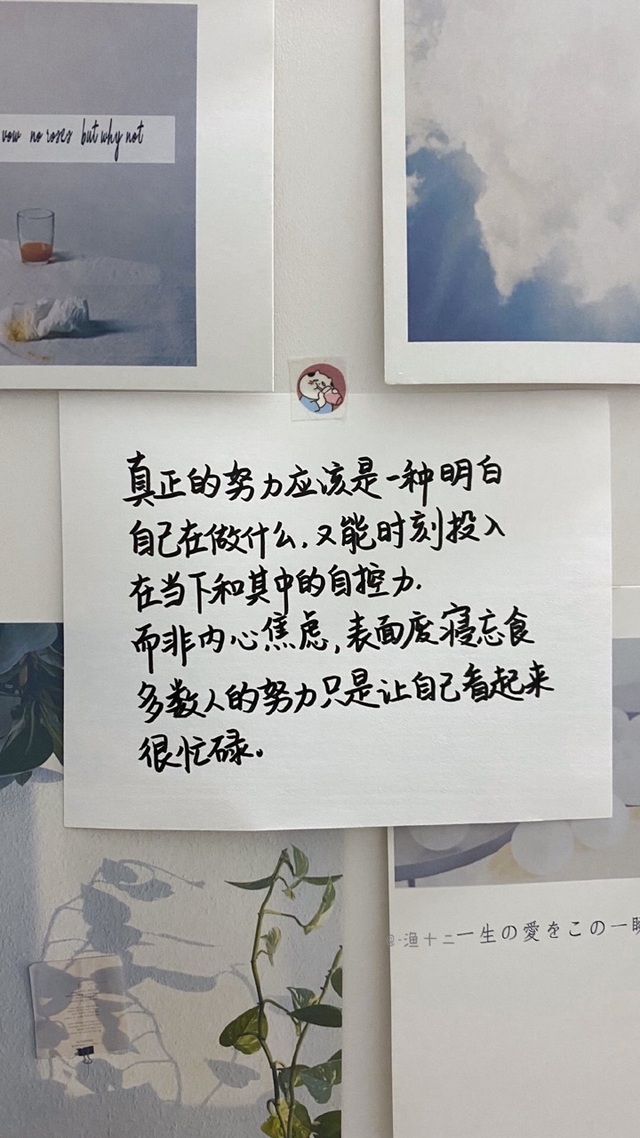 vow no roses but why not
真正的努力应该是一种明白
自己在做什么.又能时刻投入
在当下和其中的自控力.
而非内心焦虑,表面废寝忘食
多数人的努力只是让自己看起来
很忙碌。
渔十二
一生の愛をこの一瞬